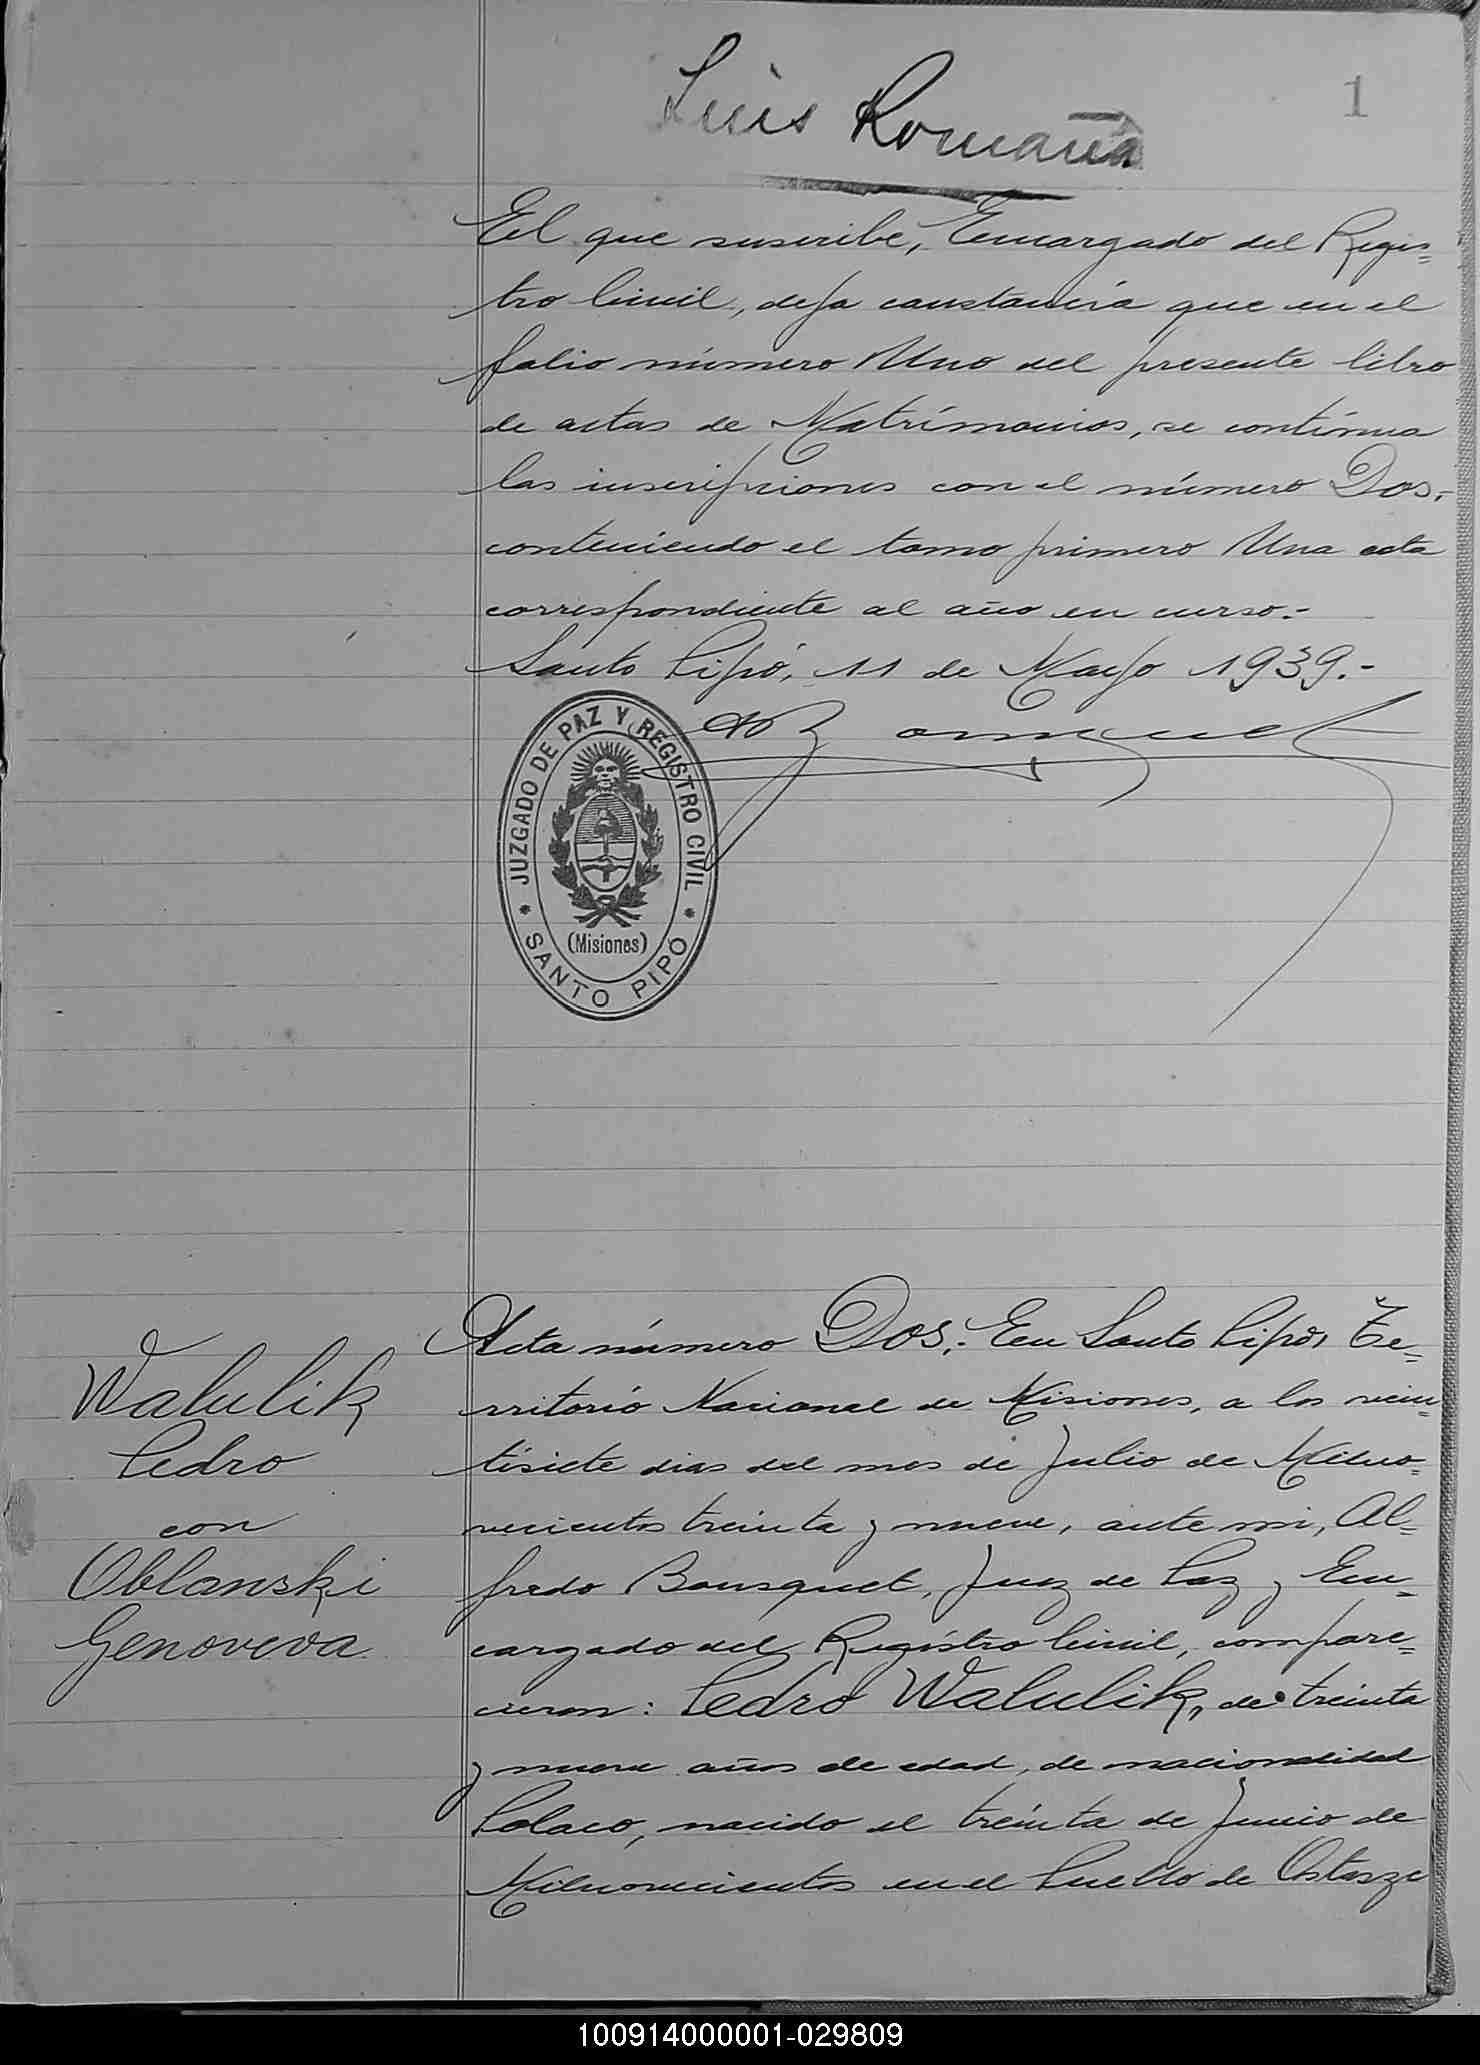 Luis Romaña
1
El que suscribe, Encargado del Regis=
tro Civil, deja constancia que en el
folio número Uno del presente libro
de actas de Matrimonios, se continua
las inscripciones con el número Dos,-
conteniendo el tomo primero Una acta
correspondiente al año en curso.-
Santo Pipó, 11 de Mayo 1939.-
JUZGADO DE PAZ Y REGISTRO CIVIL
(Misiones)
* SANTO PIPÓ *
Walulik
Pedro
con
Oblanski
Genoveva.
Acta número Dos.- En Santo Pipó, Te=
rritorio Nacional de Misiones, a los vein=
tisiete dias del mes de Julio de Milno=
vecientos treinta y nueve, ante mi, Al=
fredo Bousquet, Juez de Paz y En=
cargado del Registro Civil, compare=
cieron: Pedro Walulik, de treinta
y nueve años de edad, de nacionalidad
Polaco, nacido el treinta de Junio de
Milnovecientos en el Pueblo de Ostasze
100914000001-029809